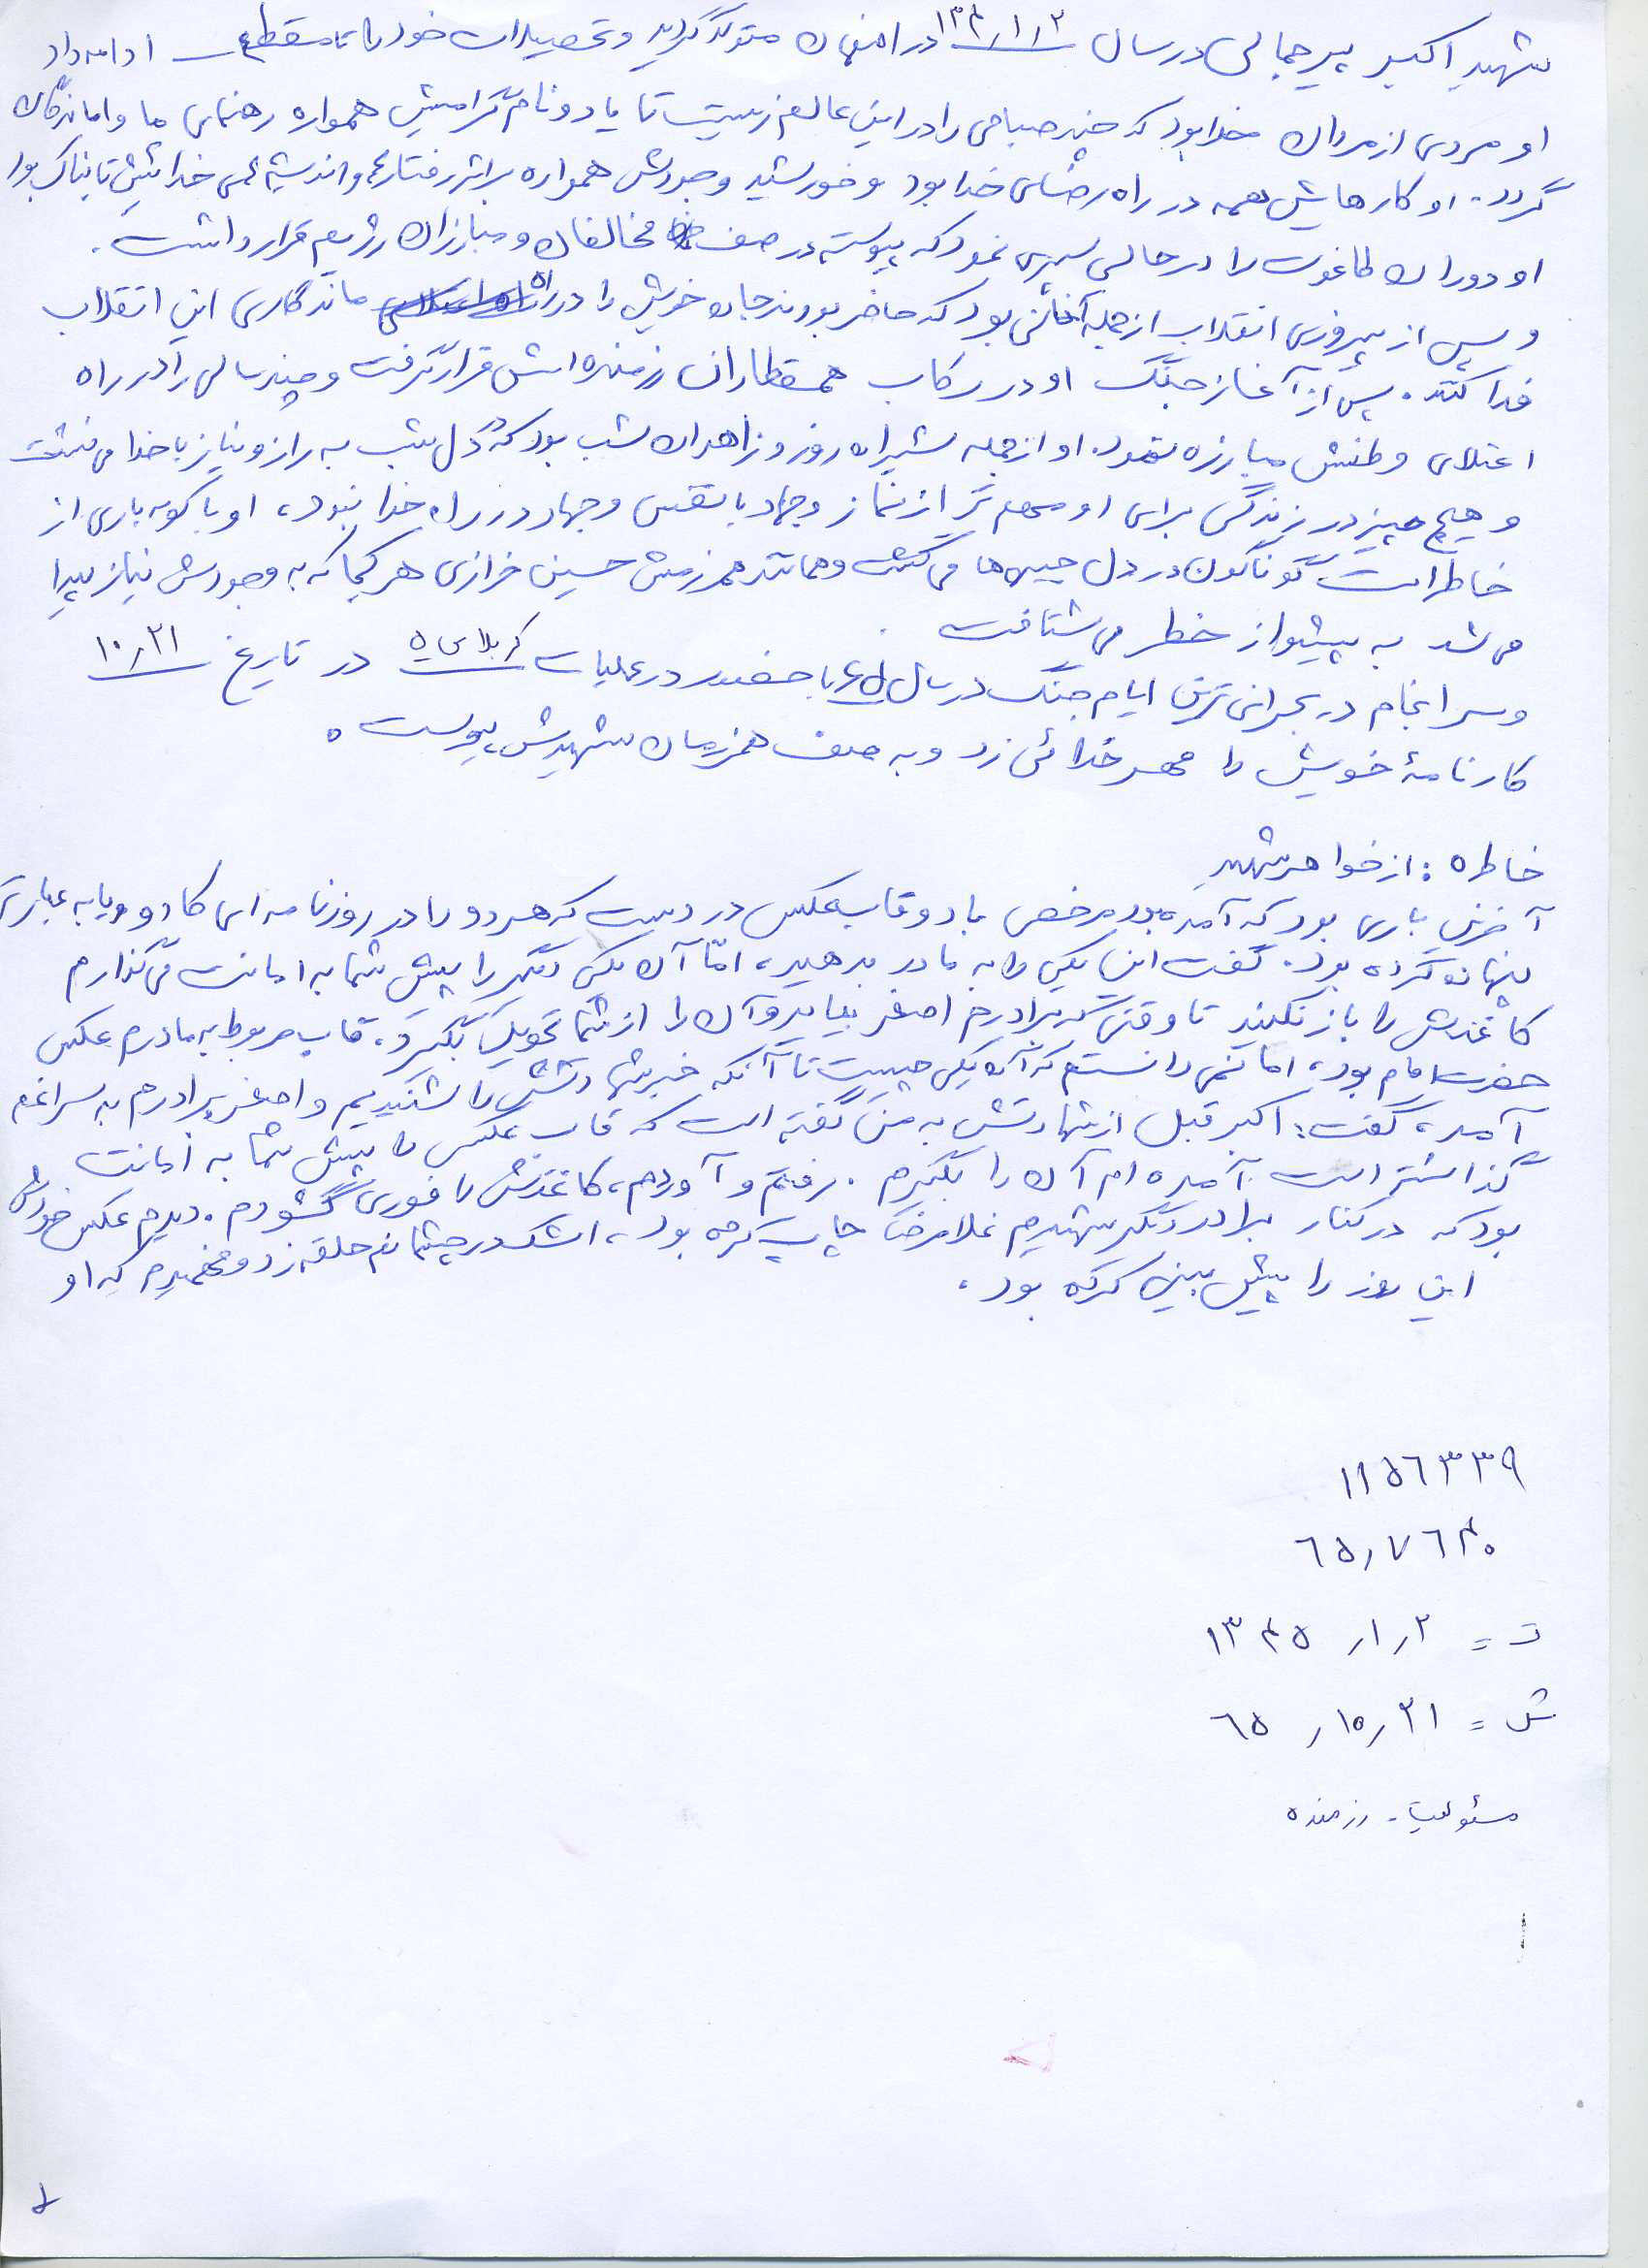 شهید اکبر پیرجمالی در سال ۱۳۴۰/۱/۲ در اصفهان متولد گردید و تحصیلات خود را تا مقطع ادامه داد
او مردی از مردان خدا بود که چند صباحی را در این عالم زیست تا یاد و نام گرامیش همواره رهنمای ما واماندگان
گردد. او کارهایش همه در راه رضای خدا بود و خورشید وجودش همواره بر اثر رفتارها و اندیشه های خدائیش تابناک بود
او دوران طاغوت را در حالی سپری نمود که پیوسته در صف مخالفان و مبارزان رژیم قرار داشت.
و پس از پیروزی انقلاب از جمله آنانی بود که حاضر بودند جان خویش را در راه ماندگاری این انقلاب
فدا کنند. پس از آغاز جنگ او در رکاب همقطاران رزمنده اش قرار گرفت و چند سالی را در راه
اعتلای وطنش مبارزه نمود. او از جمله شیران روز و زاهدان شب بود که در دل شب به راز و نیاز با خدا می نشست
و هیچ چیز در زندگی برای او مهم تر از نماز و جهاد با نفس و جهاد در راه خدا نبود، او با کوله باری از
خاطرات گوناگون در دل جبهه ها می گشت و همانند همرزمش حسین خرازی هر کجا که به وجودش نیاز پیدا
می شد به پیشواز خطر می شتافت.
و سرانجام در بحرانی ترین ایام جنگ در سال ۶۵ با حضور در عملیات کربلای ۵ در تاریخ ۱۰/۲۱
کارنامهٔ خویش را مهر خدائی زد و به صف همرزمان شهیدش پیوست.
خاطره: از خواهر شهید
آخرین باری بود که آمده بود مرخصی با دو قاب عکس در دست که هر دو را در روزنامه ای کادو و یا به عبارتی
پنهان کرده بود. گفت این یکی را به مادر بدهید، امّا آن یکی دیگر را پیش شما به امانت می گذارم
کاغذش را باز نکنید تا وقتی که برادرم اصغر بیاید و آن را از شما تحویل بگیرد. قاب مربوط به مادرم عکس
حضرت امام بود، اما نمی دانستم که آن یکی چیست تا آنکه خبر شهادتش را شنیدیم و اصغر برادرم به سراغم
آمد، گفت: اکبر قبل از شهادتش به من گفته است که قاب عکس را پیش شما به امانت
گذاشته است. آمده ام آن را بگیرم. رفتم و آوردم، کاغذش را فوری گشودم. دیدم عکس خودش
بود که در کنار برادر دیگر شهیدم غلامرضا چاپ کرده بود، اشک در چشمانم حلقه زد و فهمیدم که او
این روز را پیش بینی کرده بود.
۱۱۵۶۳۳۹
۶۵/۷۶۴۰
ت = ۲/۱/۱۳۴۵
ش = ۲۱/۱۰/۶۵
مسئولیت - رزمنده